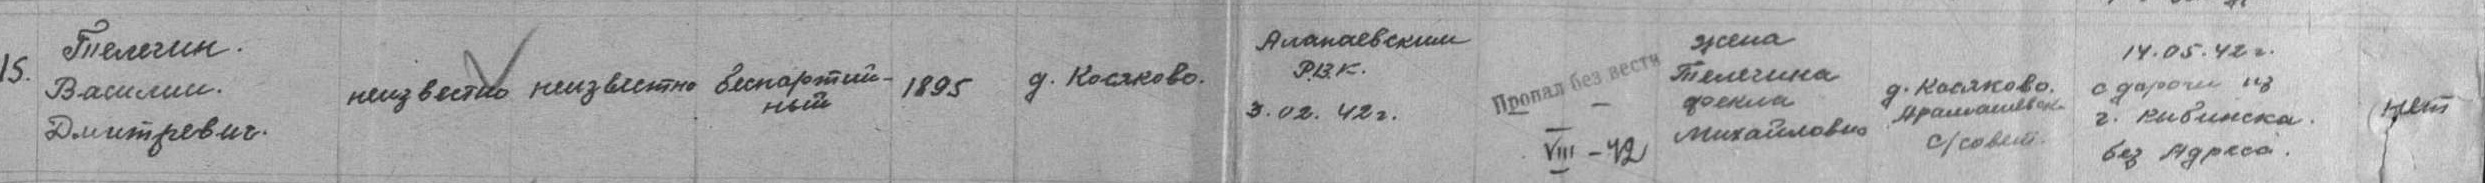 15.
Телегин.
Василии.
Дмитревич.
неизвестно
неизвестно
беспартий-
ный
1895
д. Косяково.
Алапаевским
Р.В.К.
3.02.42г.
Пропал без вести
—
VIII - 42
жена
Телегина
Фекла
Михайловна
д. Косяково.
Арамашевск.
с/совет.
14.05.42г.
с дороги из
г. Рыбинска.
без Адреса.
нет